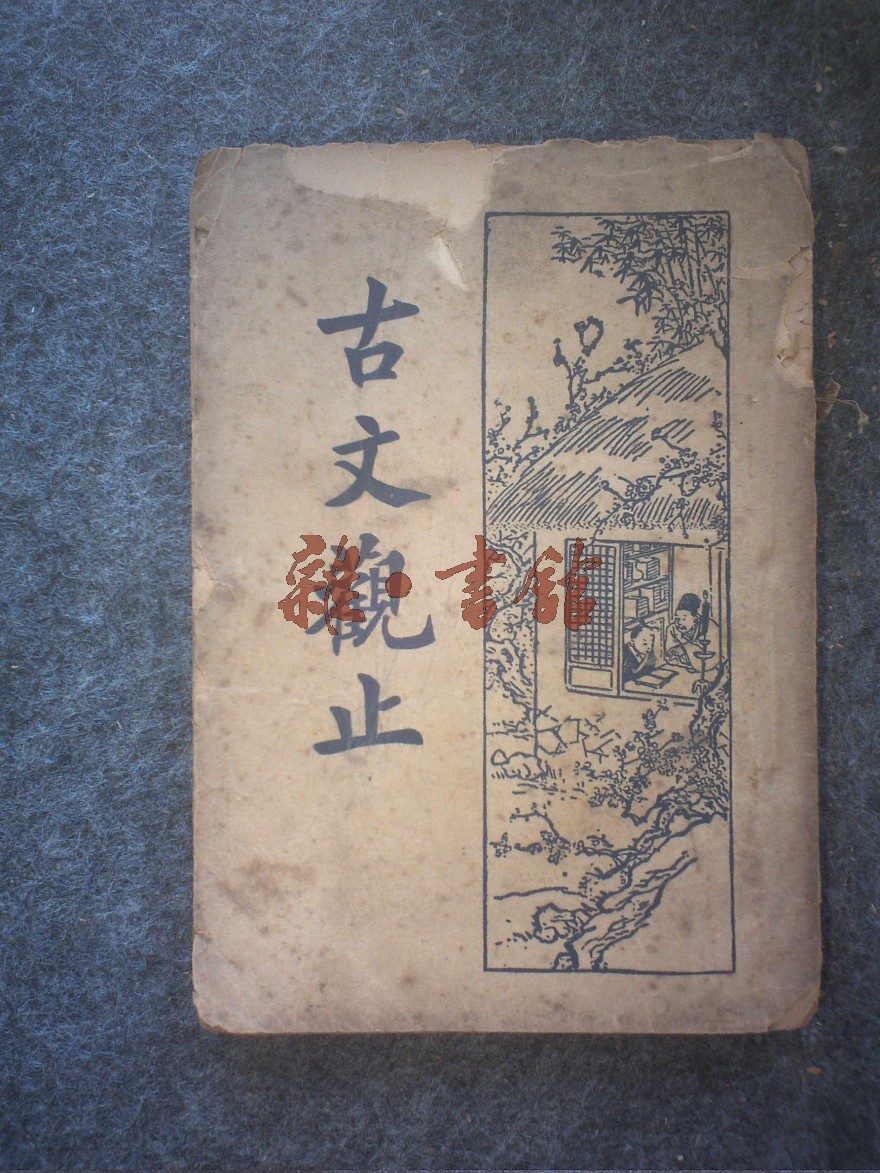 古文觀止
雜·書館